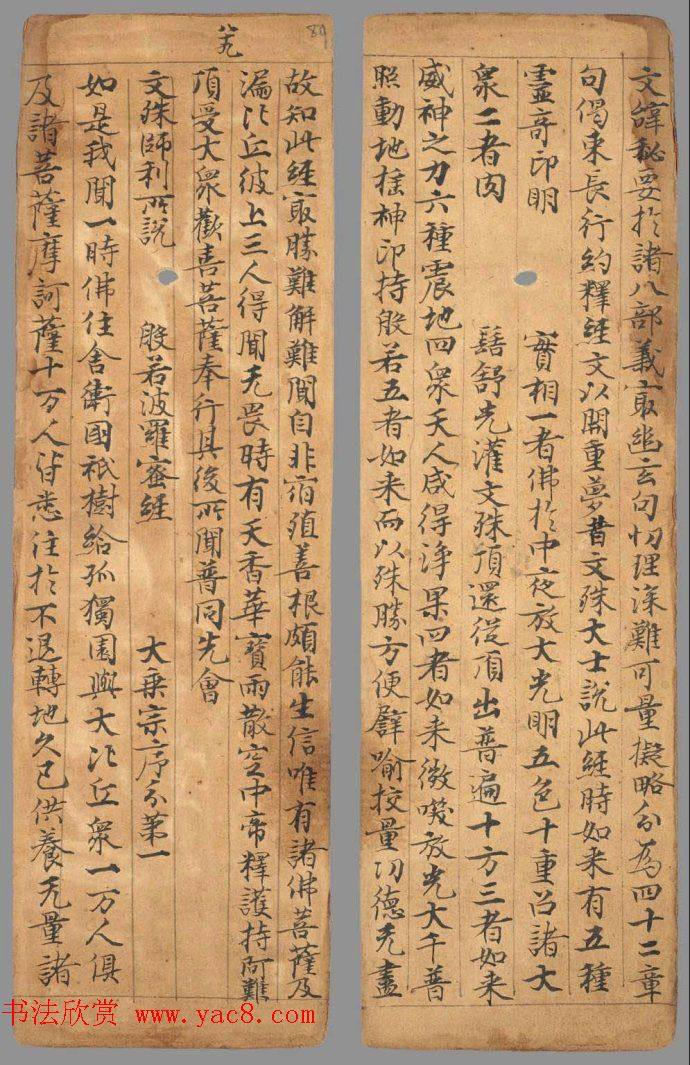 文譁秘要於諸八部義㝡幽玄句切理深難可量擬略分為四十二章
句偈束長行約釋經文以開重夢昔文殊大士說此經時如来有五種
靈哥印明 實相一者佛於中夜放大光明五色十重召諸大
衆二者肉 髻舒光灌文殊頂還從頂出普遍十方三者如来
威神之力六種震地四衆天人咸得浄果四者如来微𠸄放光大千普
照動地揺神印持般若五者如来而以殊勝方便譬喻挍量㓛德无盡
八九 89
故知此經㝡勝難解難聞自非宿殖善根頗能生信唯有諸佛菩薩及
漏比丘彼上三人得聞无畏時有天香華寶雨散空中帝釋護持阿難
頂受大衆歡喜菩薩奉行其後所聞普同先會
文殊師利所說 般若波羅蜜經 大乗宗序分第一
如是我聞一時佛住舍衛國祇樹給孤獨園與大比丘衆一万人俱
及諸菩薩摩訶薩十万人皆悉住於不退轉地久已供養无量諸
书法欣赏 www.yac8.com